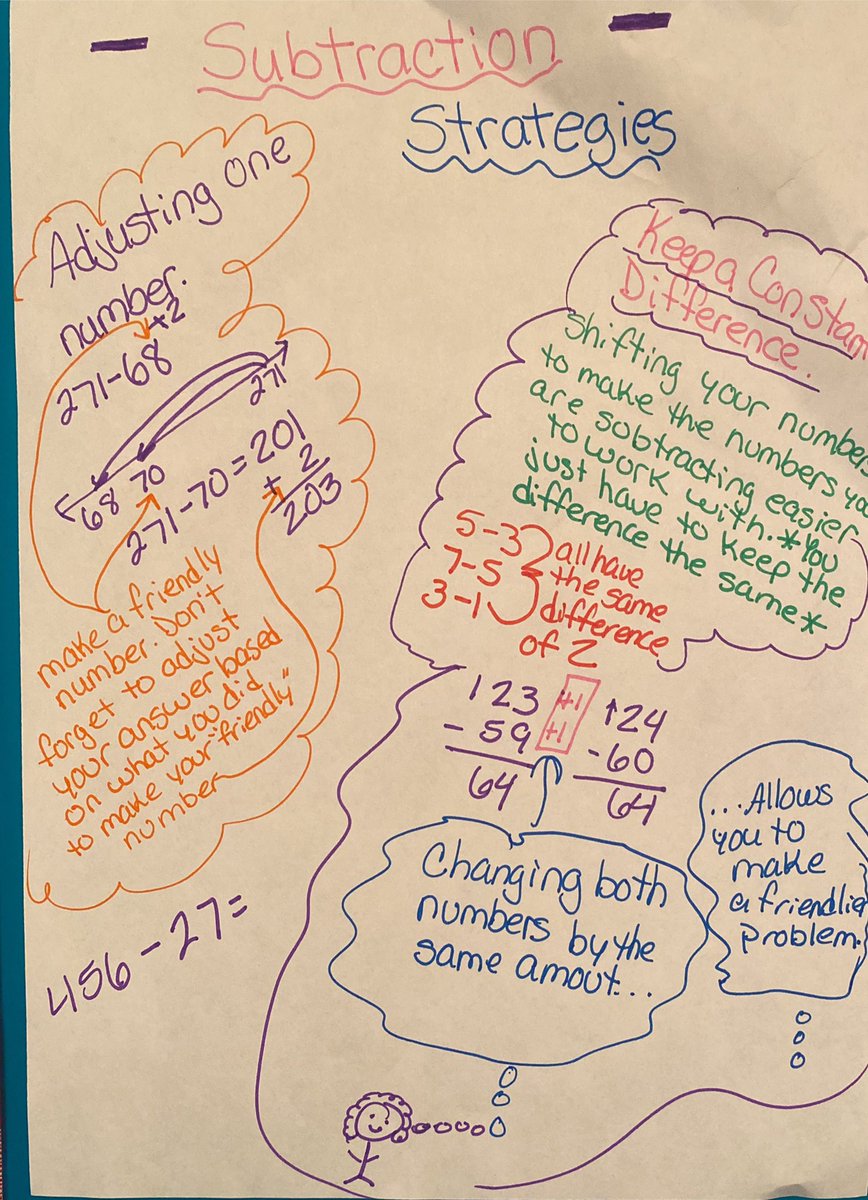 Subtraction
Strategies
Adjusting one
number.
+2
271-68
68 70 271
271-70=201
+ 2
203
make a friendly
number. Don't
forget to adjust
your answer based
on what you did
to make your "friendly"
number
456-27=
Keep a Constan
Difference.
Shifting your number
to make the numbers yo
are subtracting easier
to work with. *You
just have to keep the
difference the same*
5-3 all have
7-5 the same
3-1 difference
of 2
123 +1 124
-59 +1 -60
64 64
Changing both
numbers by the
same amout...
...Allows
you to
make
a friendlie
problem.